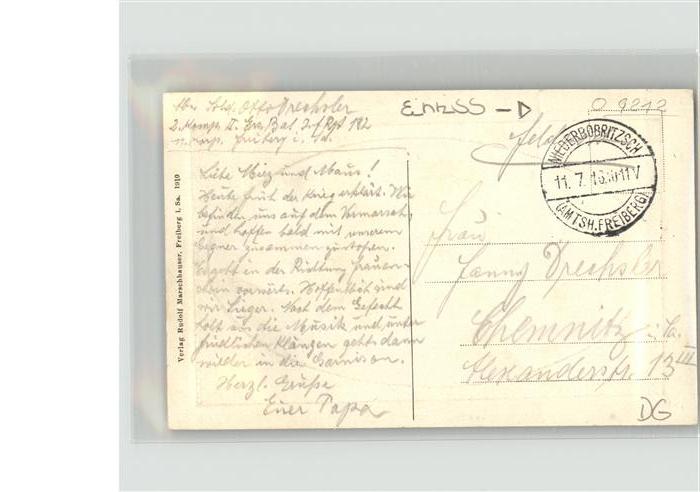 Abs. Sold. Otto Drechsler
2. Komp. II. Ers. Bat. J. f. Rgt 182
Freiberg i. Sa.
EINZSS – D
O 9212
Feld
NIEDERBOBRITZSCH
11. 7. 16. 10-11 V
(AMTSH. FREIBERG)
Liebe Miez und Maus!
Heute früh der Krieg erklärt. Wir
befinden uns auf dem Vormarsch,
und hoffen bald mit unserem
Gegner zusammen zustoßen.
Es geht in der Richtung Frauen-
stein vorwärts. Hoffentlich sind
wir Sieger. Nach dem Gefecht
holt uns die Musik und unter
friedlichen Klängen geht dann
wieder in die Garnison.
Herzl. Grüße
Euer Papa
Frau
Fanny Drechsler
Chemnitz i. Sa.
Alexanderstr. 13 III
DG
Verlag Rudolf Marschhauser, Freiberg i. Sa. 1910